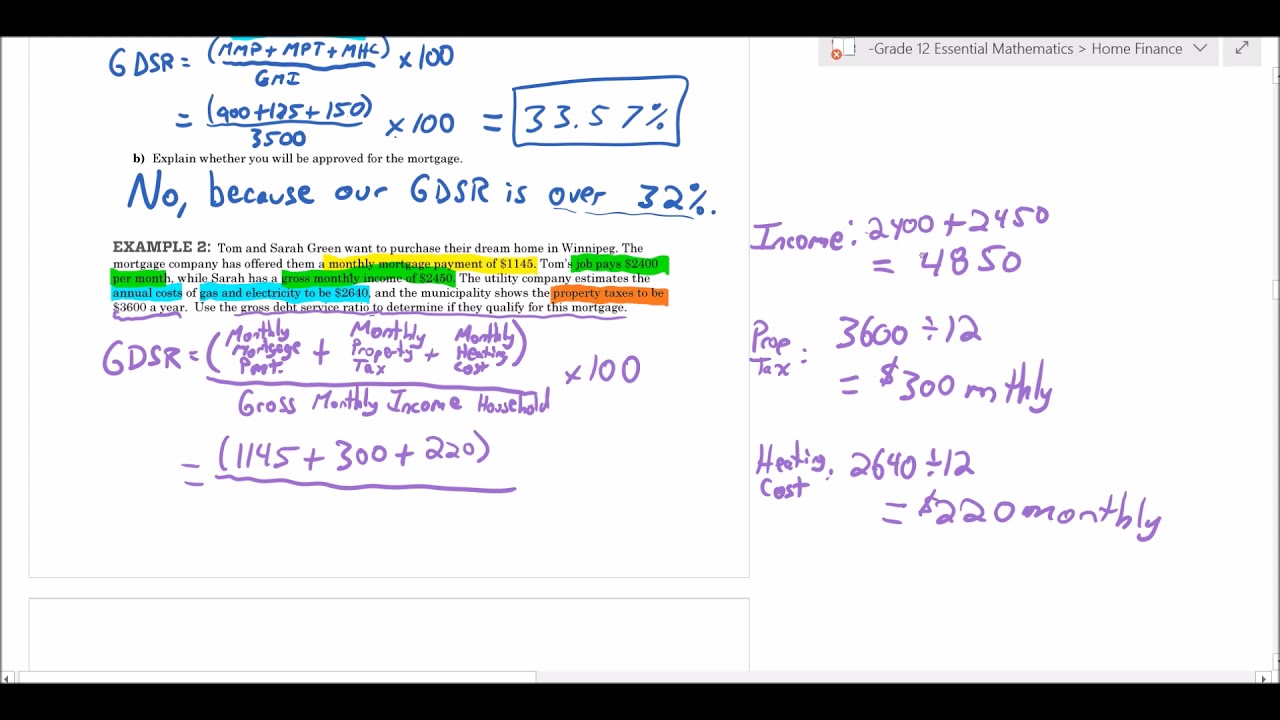 -Grade 12 Essential Mathematics > Home Finance
GDSR = (MMP + MPT + MHC) x 100
GMI
= (900+125+150) x 100 = 33.57%
3500
b) Explain whether you will be approved for the mortgage.
No, because our GDSR is over 32%.
EXAMPLE 2: Tom and Sarah Green want to purchase their dream home in Winnipeg. The
mortgage company has offered them a monthly mortgage payment of $1145. Tom's job pays $2400
per month, while Sarah has a gross monthly income of $2450. The utility company estimates the
annual costs of gas and electricity to be $2640, and the municipality shows the property taxes to be
$3600 a year. Use the gross debt service ratio to determine if they qualify for this mortgage.
GDSR = (Monthly Mortgage Pmt. + Monthly Property Tax + Monthly Heating Cost) x 100
Gross Monthly Income Household
= (1145 + 300 + 220)
Income: 2400 + 2450
= 4850
Prop Tax: 3600 ÷ 12
= $300 mthly
Heating Cost: 2640 ÷ 12
= $220 monthly